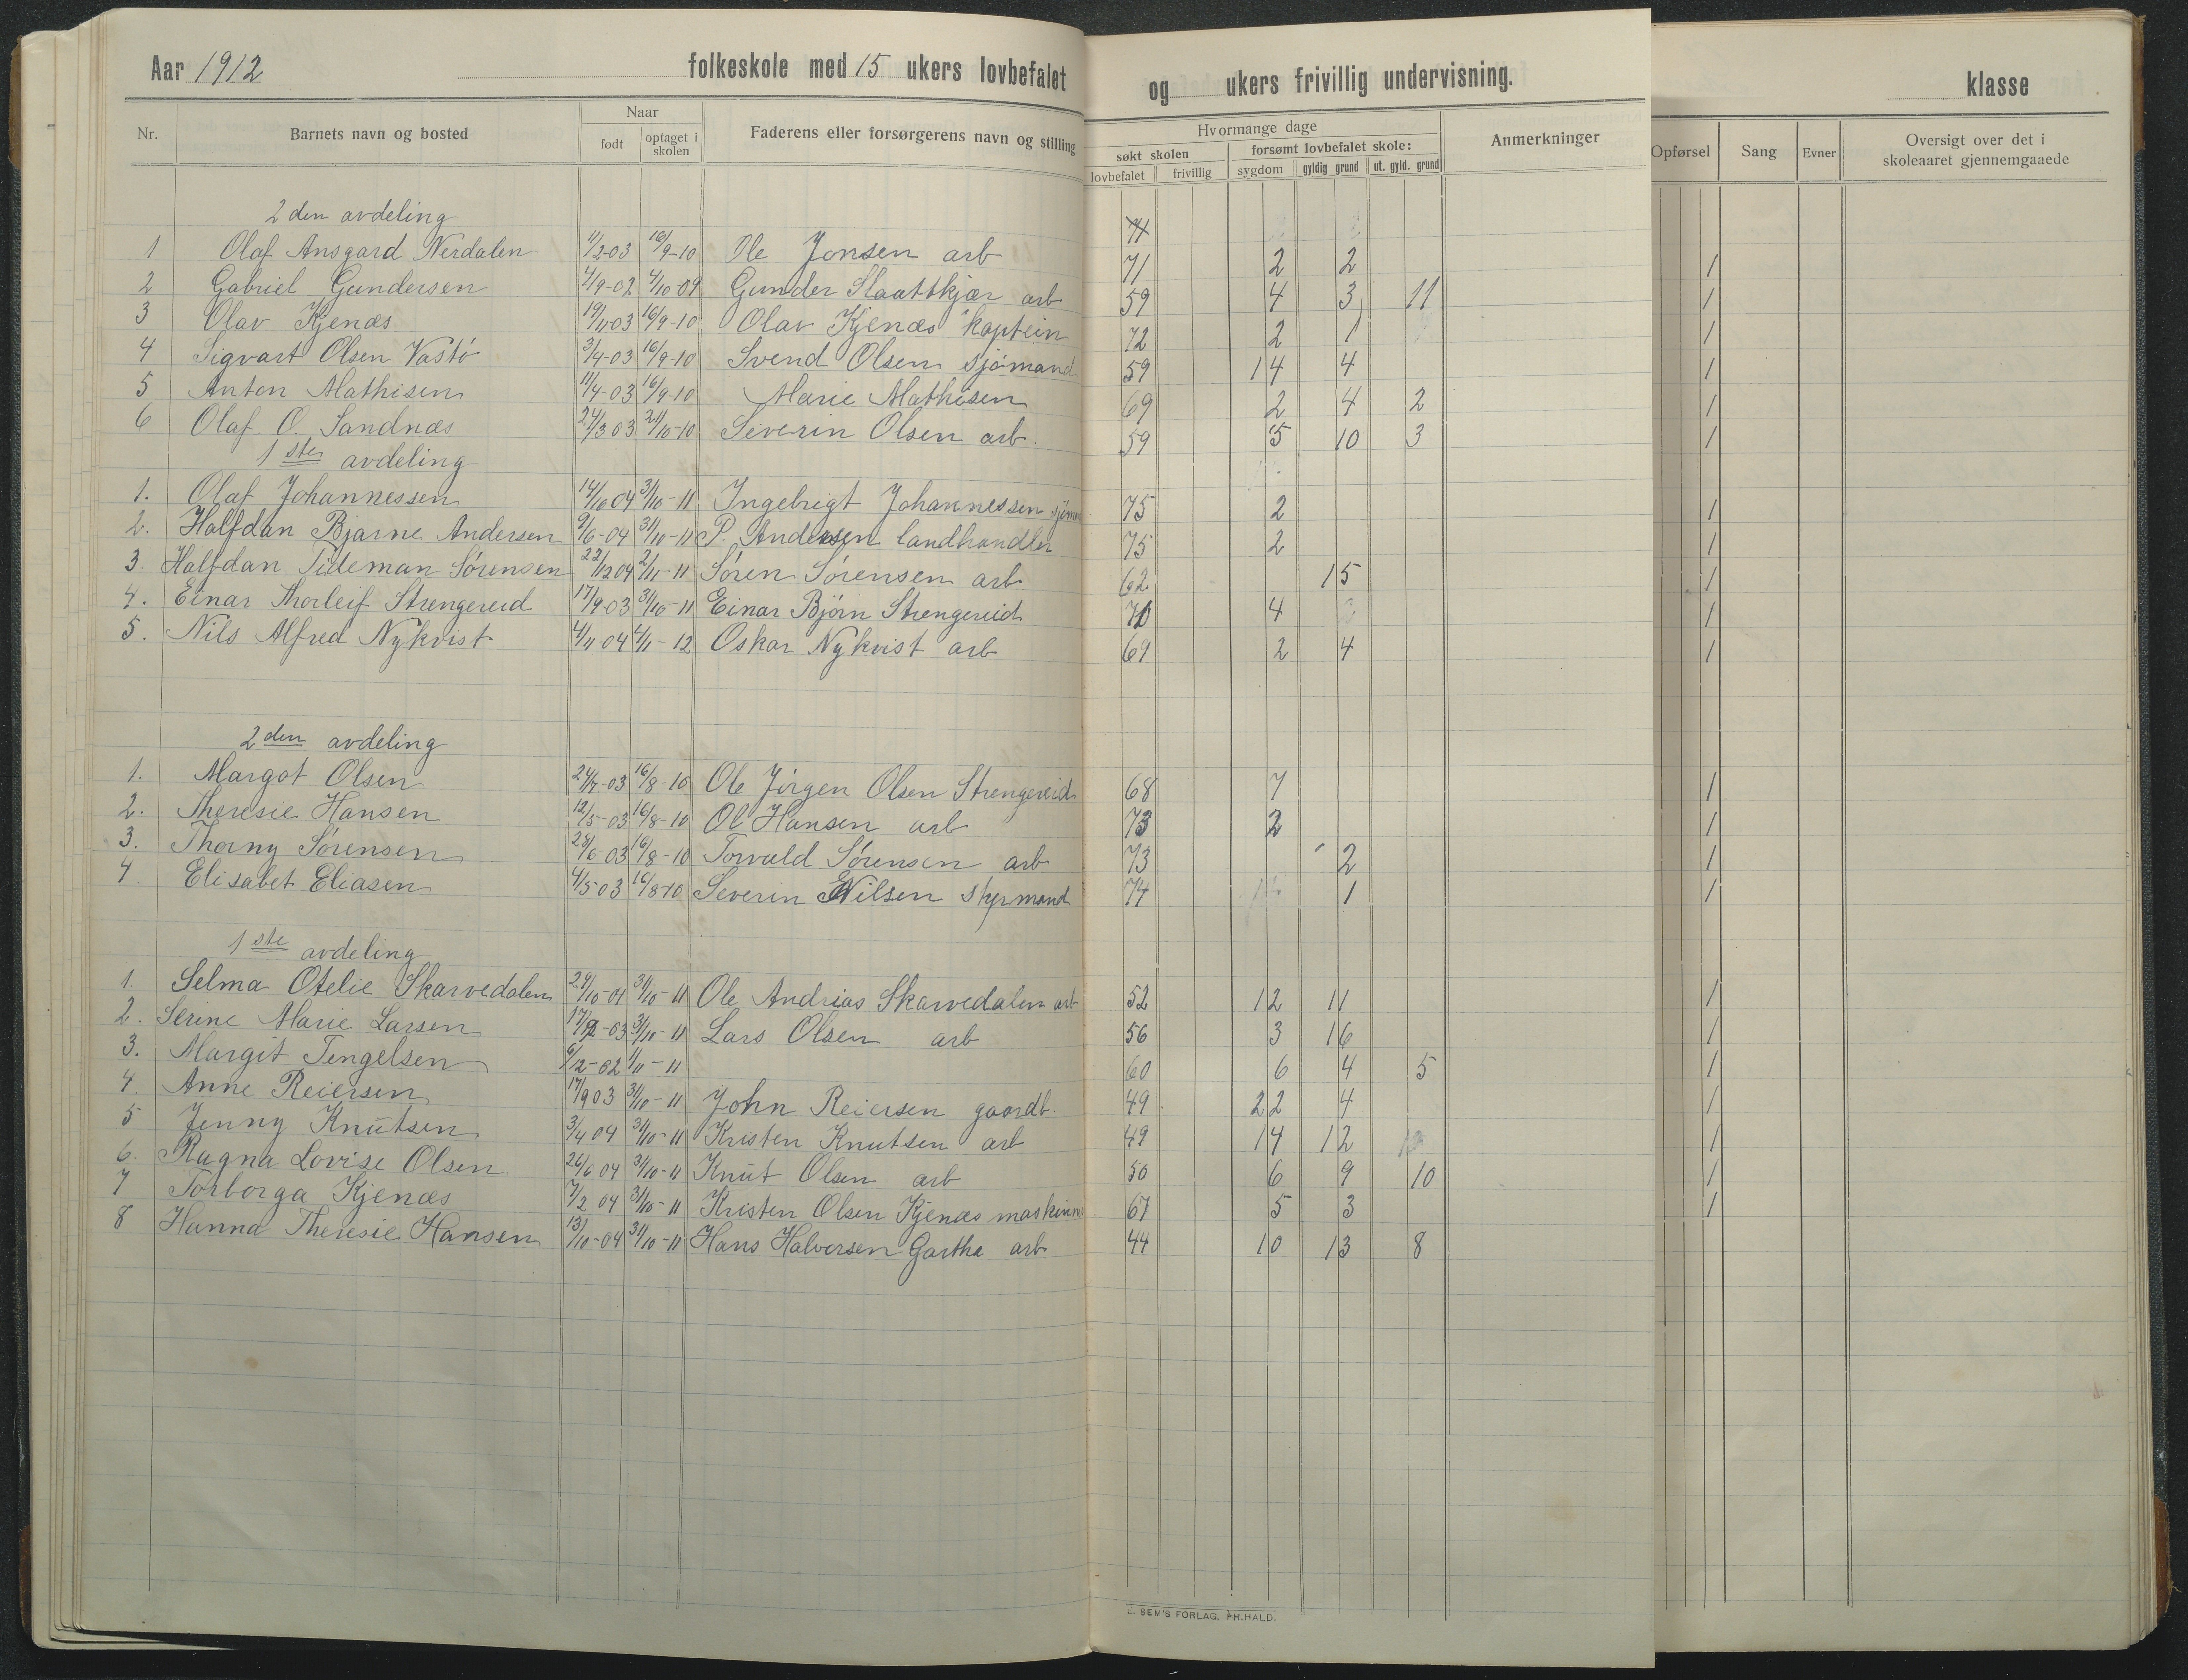 Aar 1912 folkeskole med 15 ukers lovbefalet og ukers frivillig undervisning. klasse
Nr. Barnets navn og bosted Naar født optaget i skolen Faderens eller forsørgerens navn og stilling
Hvormange dage
søkt skolen forsømt lovbefalet skole:
lovbefalet frivillig sygdom gyldig grund ut. gyld. grund Anmerkninger Opførsel Sang Evner Oversigt over det i skoleaaret gjennemgaaede
2den avdeling
1 Olaf Ansgard Nerdalen 11/2-03 16/9-10 Ole Jonsen arb 71 2 2 1
2 Gabriel Gundersen 4/9-02 4/10-09 Gunder Slaattkjær arb 59 4 3 11 1
3 Olav Kjenæs 19/11-03 16/9-10 Olav Kjenæs kaptein 72 2 1 1
4 Sigvart Olsen Vastø 3/4-03 16/9-10 Svend Olsen sjømand 59 14 4 1
5 Anton Mathisen 11/4-03 16/9-10 Marie Mathisen 69 2 4 2 1
6 Olaf O. Sandnæs 24/3 03 21/10-10 Severin Olsen arb. 59 5 10 3 1
1ste avdeling
1. Olaf Johannessen 14/10 04 31/10-11 Ingebrigt Johannessen 75 2 1
2. Halfdan Bjarne Andersen 9/6-04 31/10-11 P. Andersen landhandler 75 2 1
3. Halfdan Tideman Sørensen 22/12 04 2/11-11 Søren Sørensen arb 62 15 1
4. Einar Thorleif Strengereid 17/9-03 31/10-11 Einar Bjørn Strengereid 70 4 1
5. Nils Alfred Nykvist 4/11 04 4/11-12 Oskar Nykvist arb 69 2 4 1
2den avdeling
1. Margot Olsen 24/7-03 16/8-10 Ole Jørgen Olsen Strengereid 68 7 1
2. Theresie Hansen 12/5-03 16/8-10 Ol Hansen arb 73 2 1
3. Thorny Sørensen 28/6-03 16/8-10 Torvald Sørensen arb 73 2 1
4. Elisabet Eliasen 4/5 03 16/8-10 Severin Nilsen styrmand 74 1 1
1ste avdeling
1. Selma Otelie Skarvedalen 29/10-04 31/10-11 Ole Andrias Skarvedalen arb 52 12 11 1
2. Serine Marie Larsen 17/12-03 31/10-11 Lars Olsen arb 56 3 16 1
3. Margit Tengelsen 6/12-02 1/11-11 60 6 4 5 1
4. Anne Reiersen 17/9 03 31/10-11 John Reiersen gaardb. 49 22 4 1
5 Jenny Knutsen 3/4 04 31/10-11 Kristen Knutsen arb 49 14 12 1
6. Ragna Lovise Olsen 26/6 04 31/10-11 Knut Olsen arb 50 6 9 10 1
7 Torborga Kjenæs 7/2 04 31/10-11 Kristen Olsen Kjenæs maskin 67 5 3 1
8 Hanna Theresie Hansen 13/10-04 31/10-11 Hans Halvorsen Gartha arb 44 10 13 8
SEM'S FORLAG, FR.HALD.